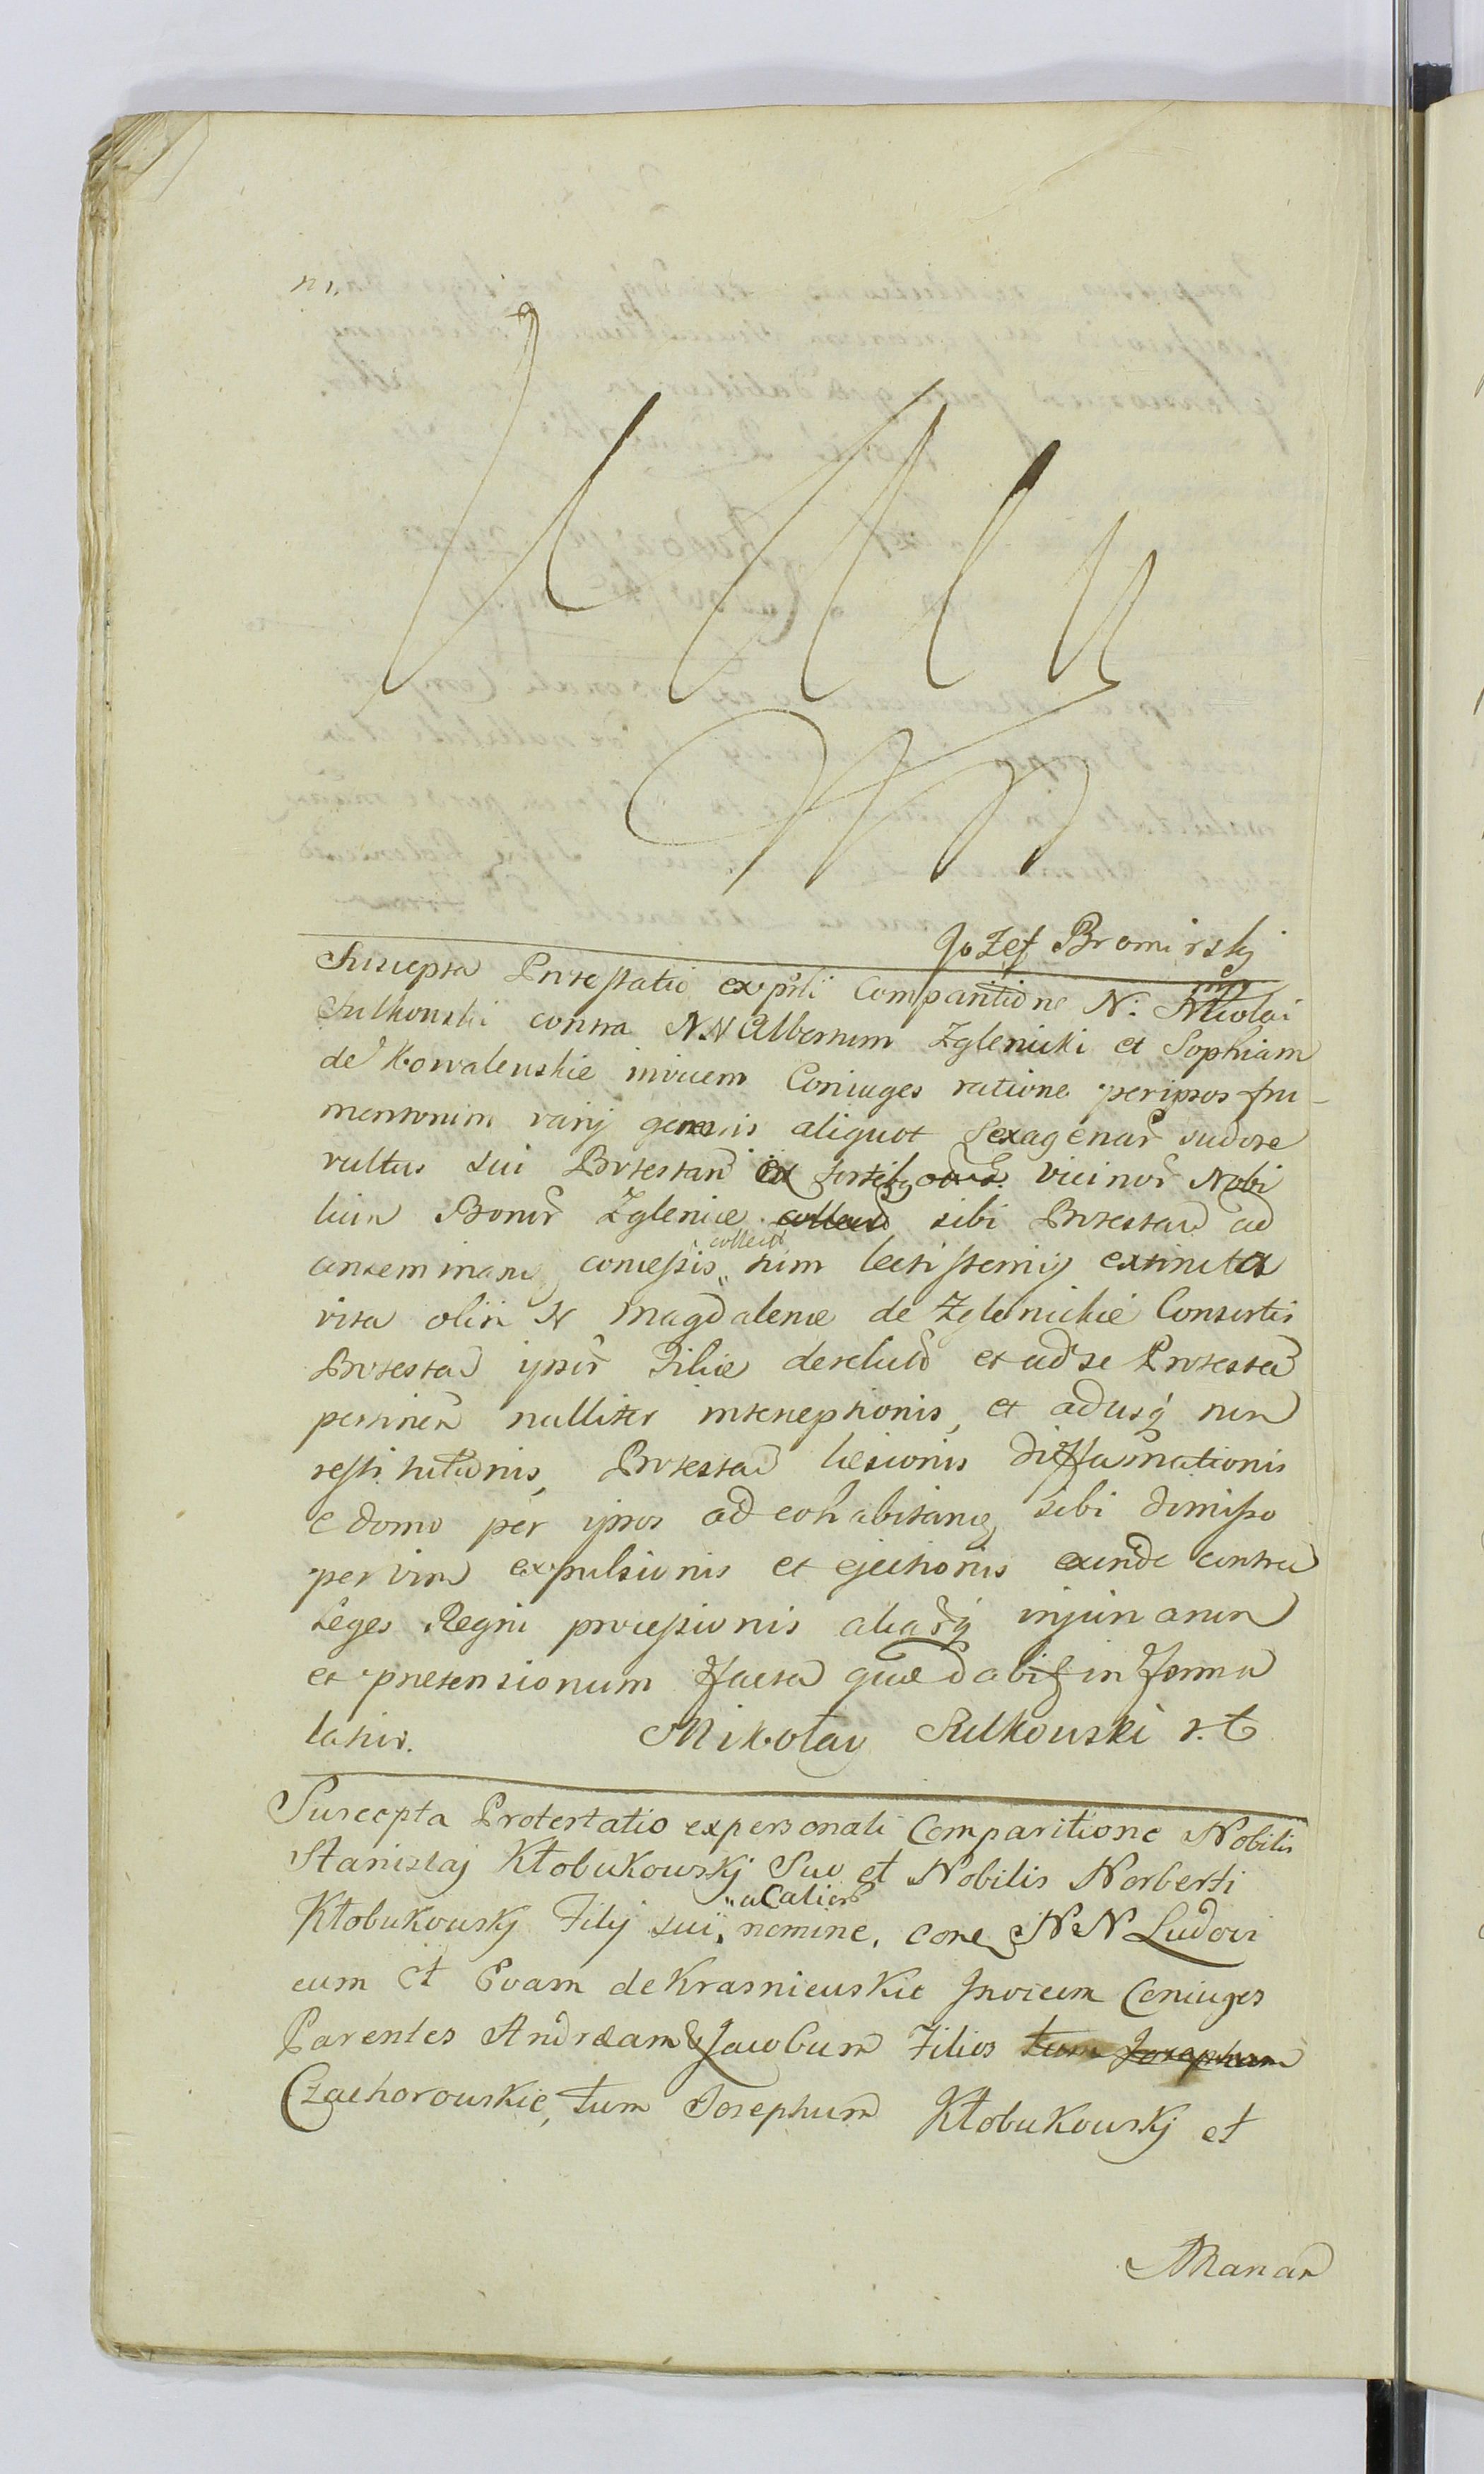 Jozef Bromirskj
mp
Suscepta Protestatio ex psli Comparitione N: Nicolai
Sulkouski contra N.N Albertum Zglenicki et Sophiam
de Kowaleuskie invicem Coniuges ratione per ipsos fru-
mentorum varij generis aliquot Sexagenar sudore
vultus sui Protestan ex sortibq vicinor Nobi
lium Bonor Zglenice collect sibi Protestan ad
conseminang concessis collect tum lectisternij extincta
vita olim N Magdalenæ de Zglenickie Consortis
Protestan ipsor Filiæ derelict et ad se Protestan
pertinen nulliter interceptionis, et adusq nun
restitutionis, Protestan læsionis diffamationis
e domo per ipsos ad cohabitang sibi dimisso
per vim expulsionis et ejectionis exinde contra
Leges Regni processionis aliarq injuriarum
et prætensionum ffacta quæ dabit in fforma
latior. Mikołay Sulkouski r.t
Suscepta Protestatio ex personali Comparitione Nobilis
Stanisłaj Kłobukowskj Suo et Nobilis Norberti
Kłobukouskj Filij sui, nomine, cone NN Ludovi
cum et Evam de Krasnieuskie Invicem Coniuges
Parentes Andræam & Jacobum Filios tum Josephum
Czachorouskie, tum Josephum Kłobukouskj et
Marian